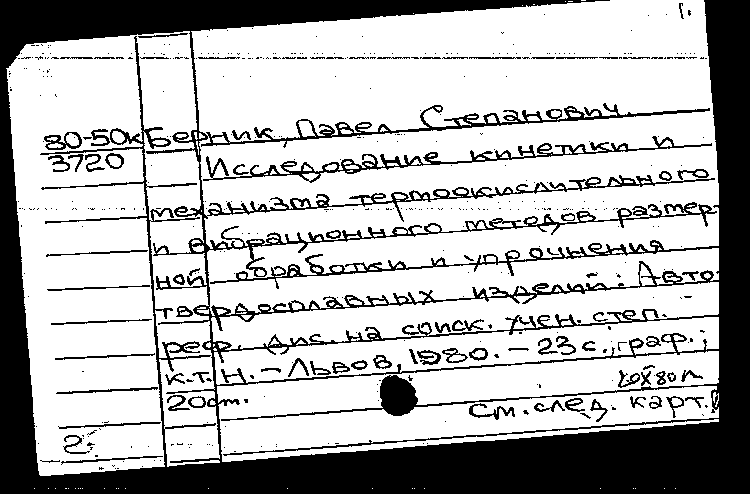 1.
80-50к Берник, Павел Степанович.
3720 Исследование кинетики и
механизма термоокислительного
и вибрационного методов размер-
ной обработки и упрочнения
твердосплавных изделий: Авто-
реф. дис. на соиск. учен. степ.
к.т.н. - Львов, 1980. - 23 с., граф.;
20 см.
См. след. карт.
2.